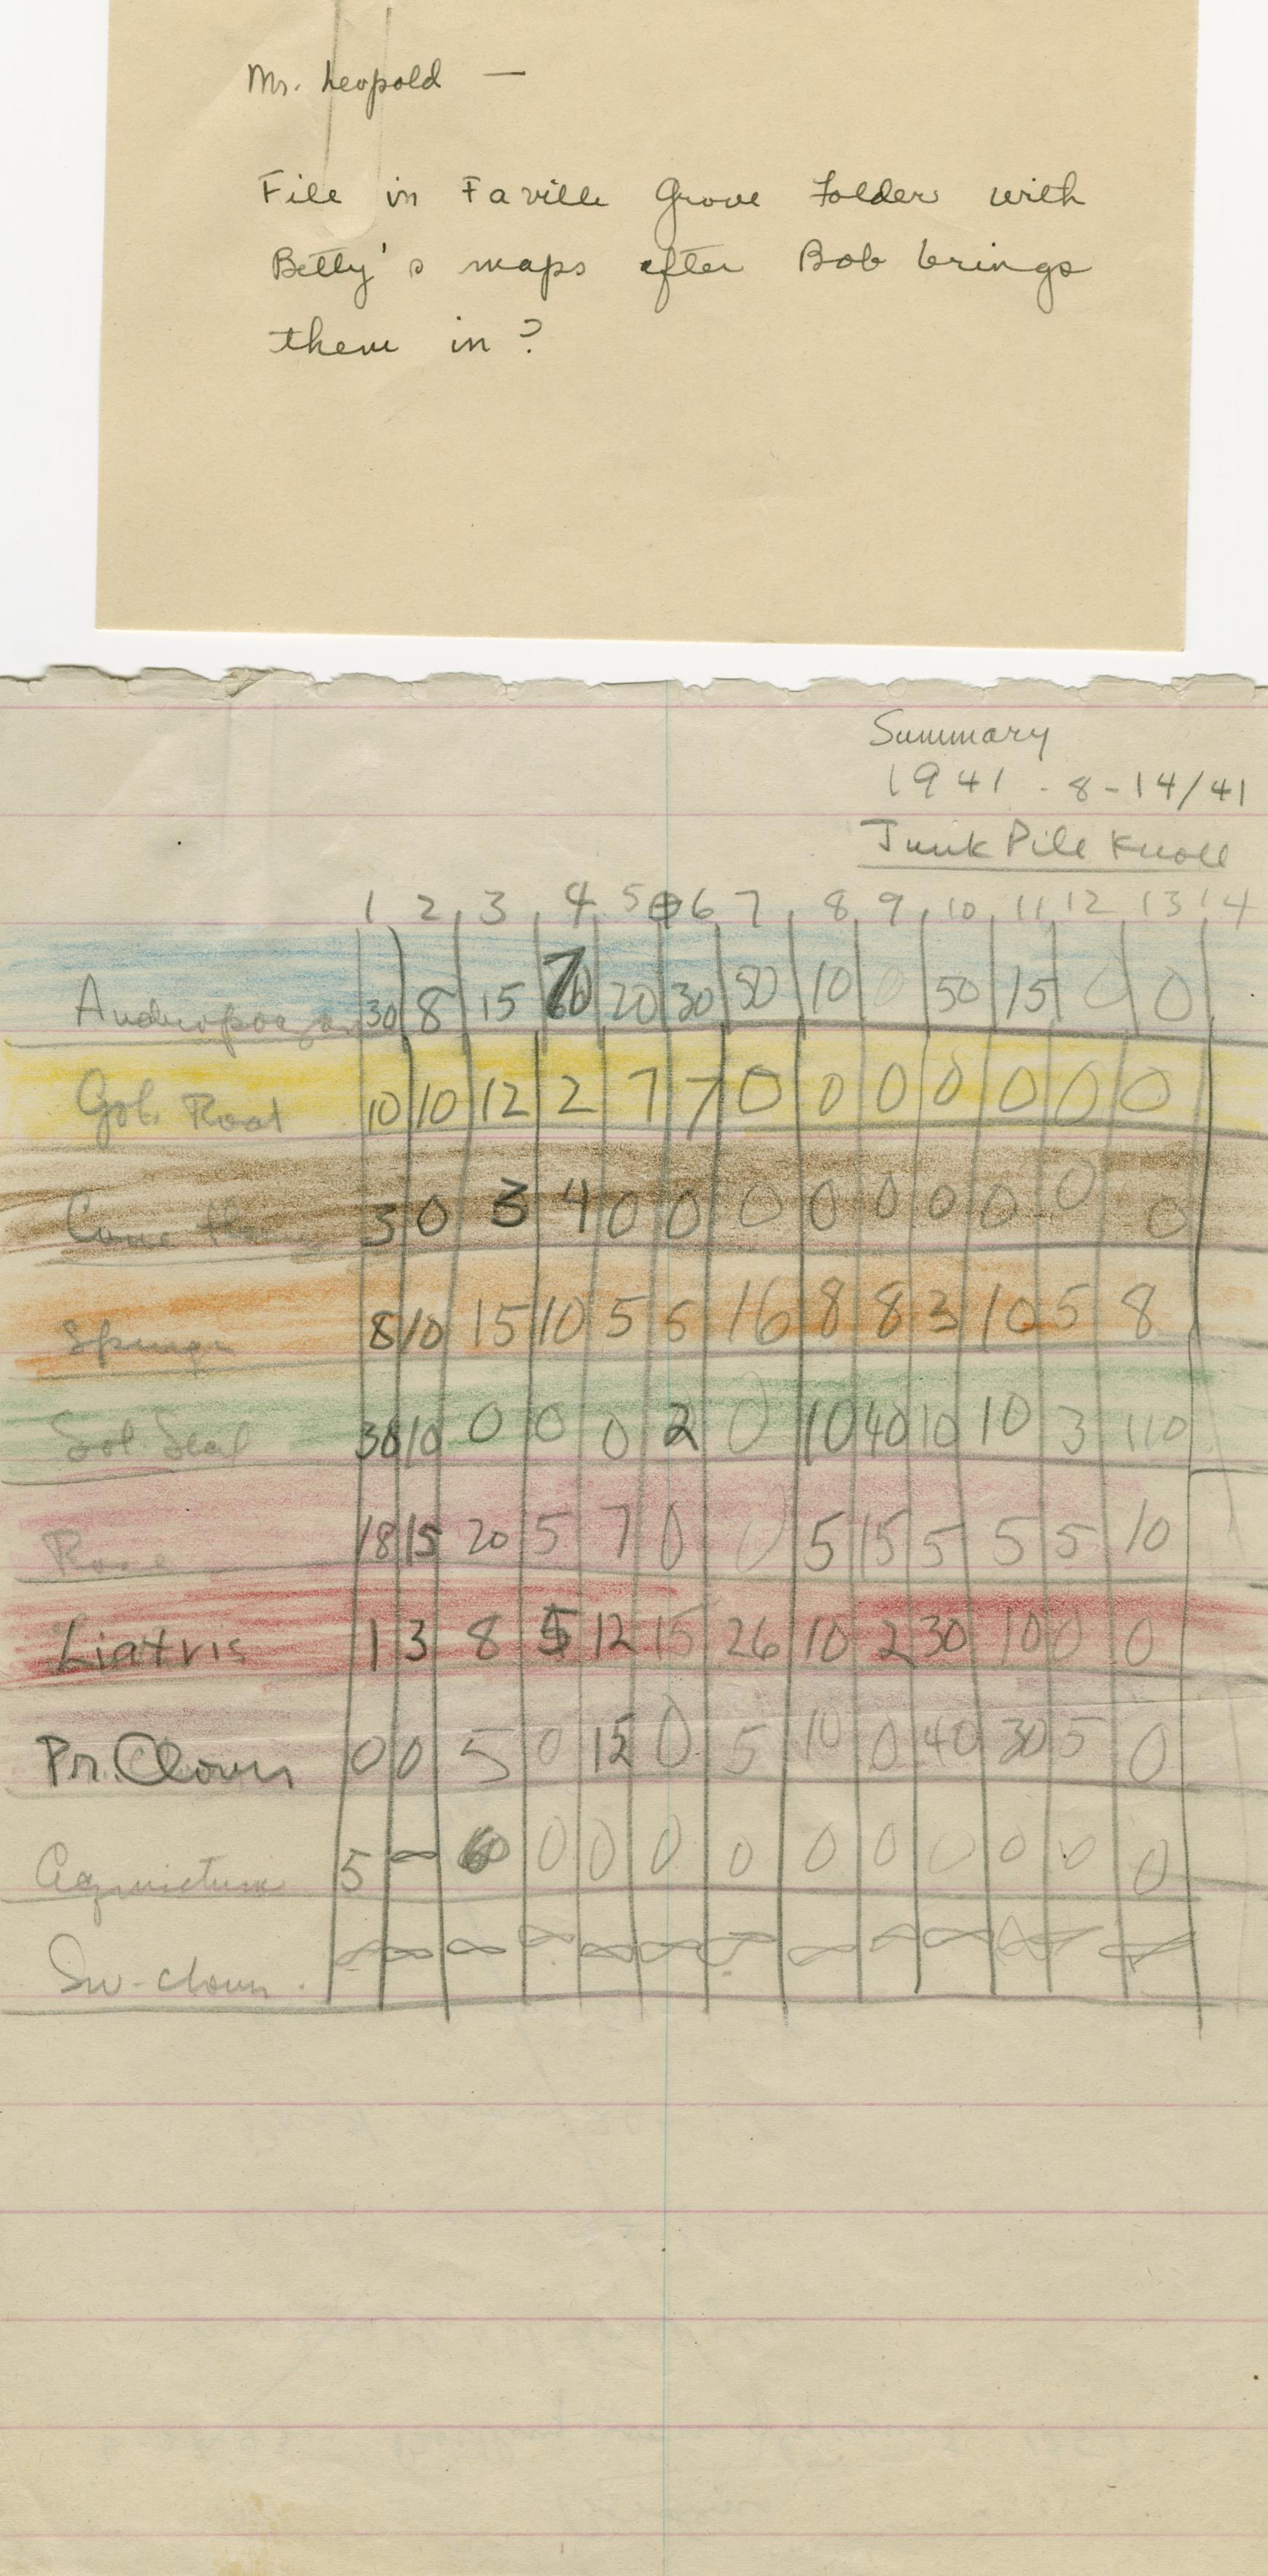 Mr. Leopold —
File in Faville Grove Folder with
Betty's maps after Bob brings
them in?
Summary
1941 - 8-14/41
Junk Pile Knoll
1 2 3 4 5 6 7 8 9 10 11 12 13 14
Andropogon 30 8 15 70 20 30 50 10 0 50 15 0 0
Gol. Root 10 10 12 2 7 7 0 0 0 0 0 0 0
Cone 3 0 3 4 0 0 0 0 0 0 0 0 0
Spurge 8 10 15 10 5 6 16 8 8 3 10 5 8
Sol. Seal 30 10 0 0 0 2 0 10 40 10 10 3 110
Rose 18 15 20 5 7 0 0 5 15 5 5 5 10
Liatris 1 3 8 5 12 15 26 10 2 30 10 0 0
Pr. Clover 0 0 5 0 12 0 5 10 0 40 30 5 0
5 ∞ 0 0 0 0 0 0 0 0 0 0
Sw-clover. ∞ ∞ ∞ ∞ ∞ ∞ ∞ ∞ ∞ ∞ ∞ ∞ ∞